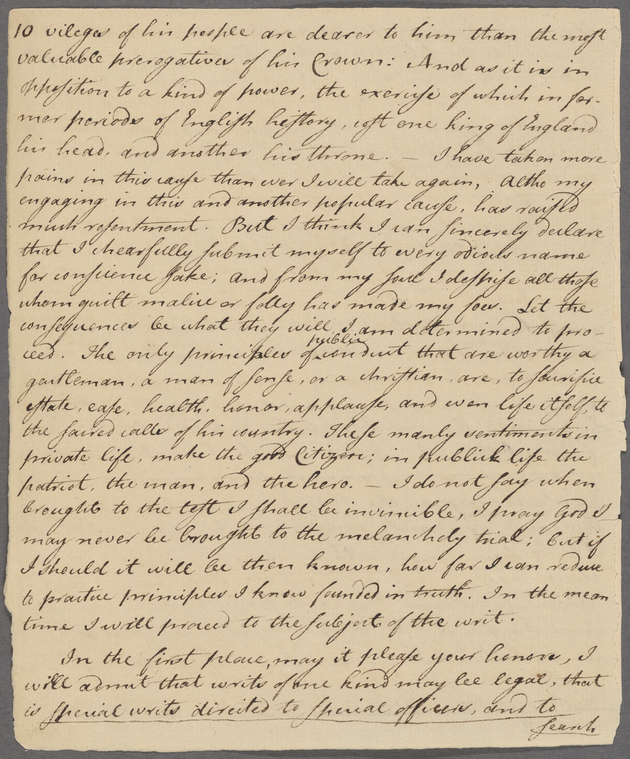 10 vileges of his people are dearer to him than the most
valuable prerogatives of his Crown: And as it is in
opposition to a kind of power, the exercise of which in for-
mer periods of English history, cost one king of England
his head, and another his throne. — I have taken more
pains in this cause than ever I will take again, Altho my
engaging in this and another popular cause, has raised
much resentment. But I think I can sincerely declare
that I chearfully submit myself to every odious name
for conscience sake; and from my soul I despise all those
whom guilt malice or folly has made my foes. Let the
consequences be what they will, I am determined to pro-
public
ceed. The only principles of conduct that are worthy a
gentleman, a man of sense, or a christian, are, to sacrifice
estate, ease, health, honor, applause, and even life itself, to
the sacred calls of his country. These manly sentiments in
private life, make the good Citizen; in publick life the
patriot, the man, and the hero. — I do not say when
brought to the test I shall be invincible, I pray God I
may never be brought to the melancholy trial; but if
I should it will be then known, how far I can reduce
to practice principles I know founded in truth. In the mean
time I will proceed to the subject of the writ.
In the first place, may it please your honors, I
will admit that writs of one kind may be legal, that
is special writs directed to special officers, and to
search